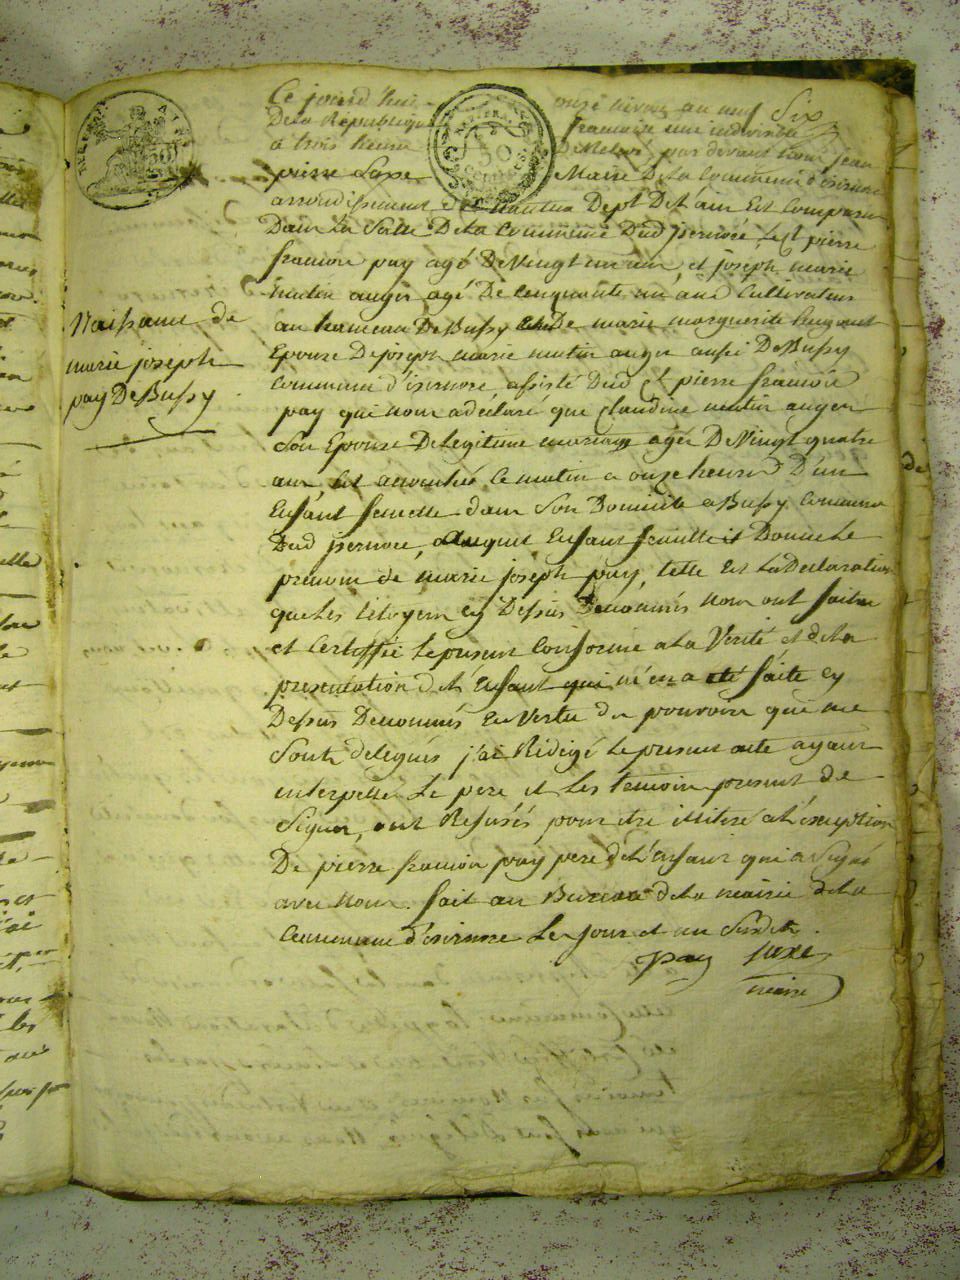 Naissance de
marie joseph
pay De Bussy
Ce jourd'hui onze nivos an neuf Six
De la République francaise une indivisible
a trois heure De Relevé, par devant nous jean
pierre Saxe Maire De la Commune d'isernore
arrondissement de Nantua Dept De L'ain Est Comparu
Dans La Salle De La Commune Dud isernore, Le Ct pierre
francois pay agé De Vingt un, et Joseph marie
mutin auger agé De Cinquante un ans Cultivateurs
au hameau De Bussy De marie marguerite
Epouse De joseph marie mutin auger aussi De Bussy
Commune d'isernore assisté Dud Ct pierre francois
pay qui nous a déclaré que Claudine mutin auger
Son Epouse De Legitime mariage agée De Vingt quatre
ans, Est accouchée Ce matin a onze heures D'un
Enfant femelle dans Son Domicile a Bussy Commune
Dud isernore, auquel Enfant femelle il Donne Le
prenom de marie joseph pay, telle Est La Declaration
que Les Citoyens cy Dessus Denommés Nous ont faite
et Certiffié Le present Conforme a La Verité et de La
presentation de L'Enfant qui m'en a eté faite cy
Dessus Denommés En Vertu du pouvoir qui me
Sont delegués j'ai Rédigé Le present acte ayant
interpellé Le pere et Les temoin present de
Signer, ont Refusés pour etre illiteré a L'exception
De pierre francois pay pere de L'Enfant qui a Signé
avec Nous. fait au Bureau de La mairie de La
Commune d'isernore Les Jour et an Susdits.
pay Saxe
maire